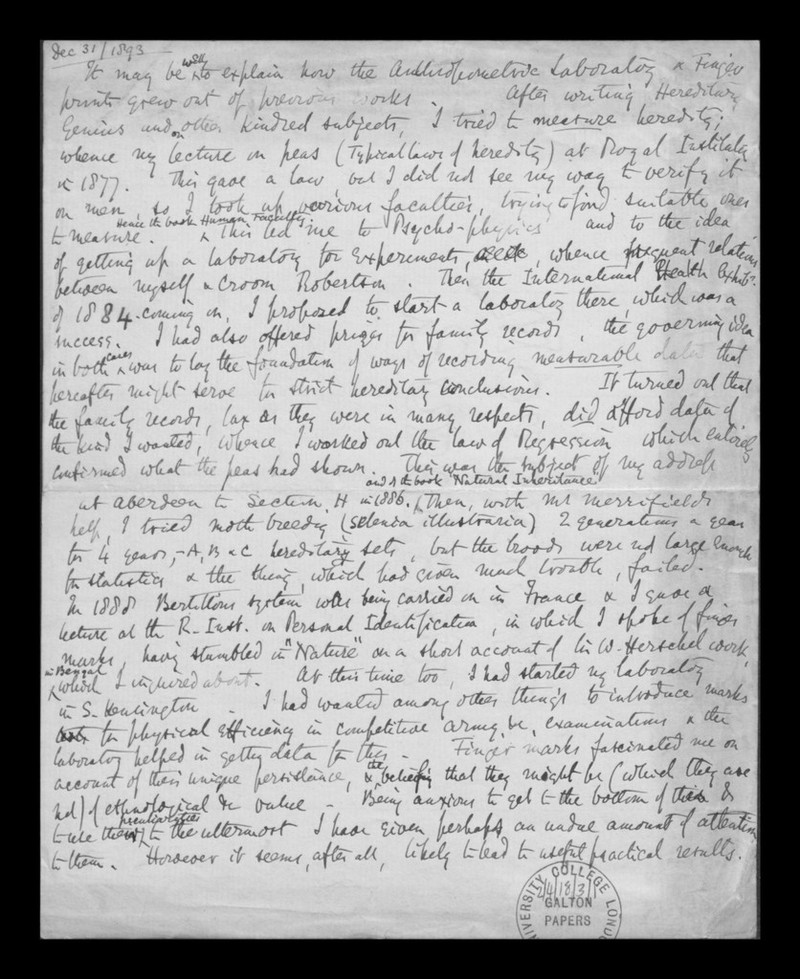 Dec 31/1893
It may be well to explain how the Anthropometric Laboratory & Finger
prints grew out of previous works. After writing Hereditary
Genius and on other kindred subjects, I tried to measure heredity;
whence my lecture on peas (Typical laws of heredity) at Royal Institution
in 1877. This gave a law but I did not see my way to verify it
on men, so I took up various faculties, trying to find suitable ones
Hence the book Human Faculty.
to measure. & This led me to Psycho-physics and to the idea
of getting up a laboratory for Experiments, whence frequent relations
between myself & Croom Robertson. Then the International Health Exhibn.
of 1884 coming on, I proposed to start a laboratory there, which was a
success. I had also offered prizes for family records, the governing idea
in both cases was to lay the foundation of ways of recording measurable data that
hereafter might serve for strict hereditary conclusions. It turned out that
the family records, lax as they were in many respects, did afford data of
the kind I wanted, whence I worked out the law of Regression which entirely
confirmed what the peas had shown. This was the subject of my address
and of the book Natural Inheritance
at Aberdeen to Section H in 1886. Then, with Mr Merrifield's
help, I tried moth breeding (Selenia illustraria) 2 generations a year
for 4 years, - A, B & C hereditary sets, but the broods were not large enough
for statistics & the thing, which had given much trouble, failed.
In 1888 Bertillon's system was being carried on in France & I gave a
lecture at the R. Inst. on Personal Identification, in which I spoke of finger
marks, having stumbled in "Nature" on a short account of Sir W. Herschel work,
in Bengal
which I inquired about. At this time too, I had started my laboratory
in S. Kensington. I had wanted among other things to introduce marks
for physical efficiency in competitive army, &c, examinations & the
laboratory helped in getting data for this. Finger marks fascinated me on
account of their unique persistence, & the belief that they might be (which they are
not) of ethnological &c value. Being anxious to get to the bottom of this &
peculiarities
to use their to the uttermost I have given perhaps an undue amount of attention
to them. However it seems, after all, likely to lead to useful practical results.
UNIVERSITY COLLEGE LONDON
GALTON
PAPERS